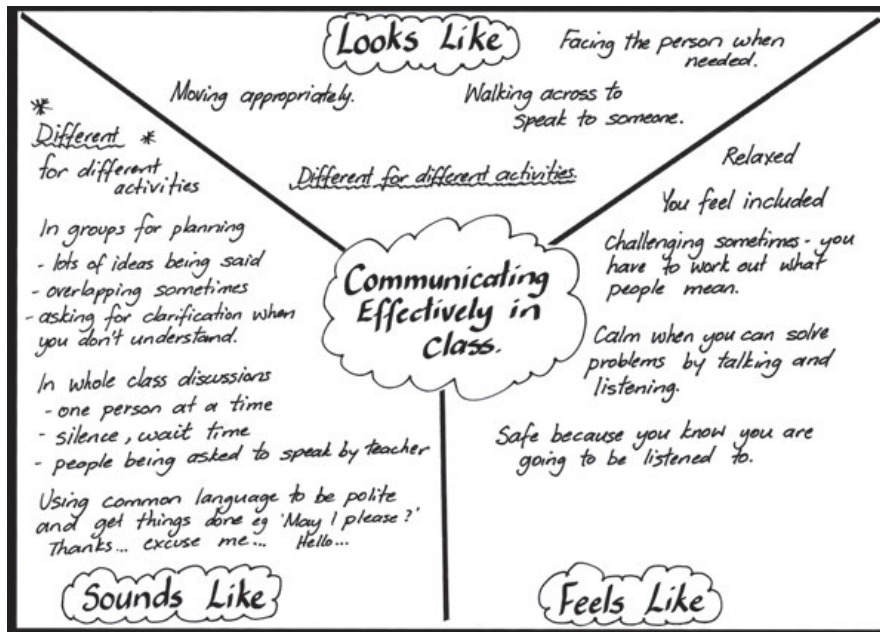 Looks Like
Facing the person when
needed.
Moving appropriately.
Walking across to
speak to someone.
Different for different activities.
Communicating
Effectively in
Class.
* Different *
for different
activities
In groups for planning
- lots of ideas being said
- overlapping sometimes
- asking for clarification when
you don't understand.
In whole class discussions
- one person at a time
- silence, wait time
- people being asked to speak by teacher
Using common language to be polite
and get things done eg 'May I please?'
Thanks... excuse me... Hello...
Sounds Like
Relaxed
You feel included
Challenging sometimes - you
have to work out what
people mean.
Calm when you can solve
problems by talking and
listening.
Safe because you know you are
going to be listened to.
Feels Like